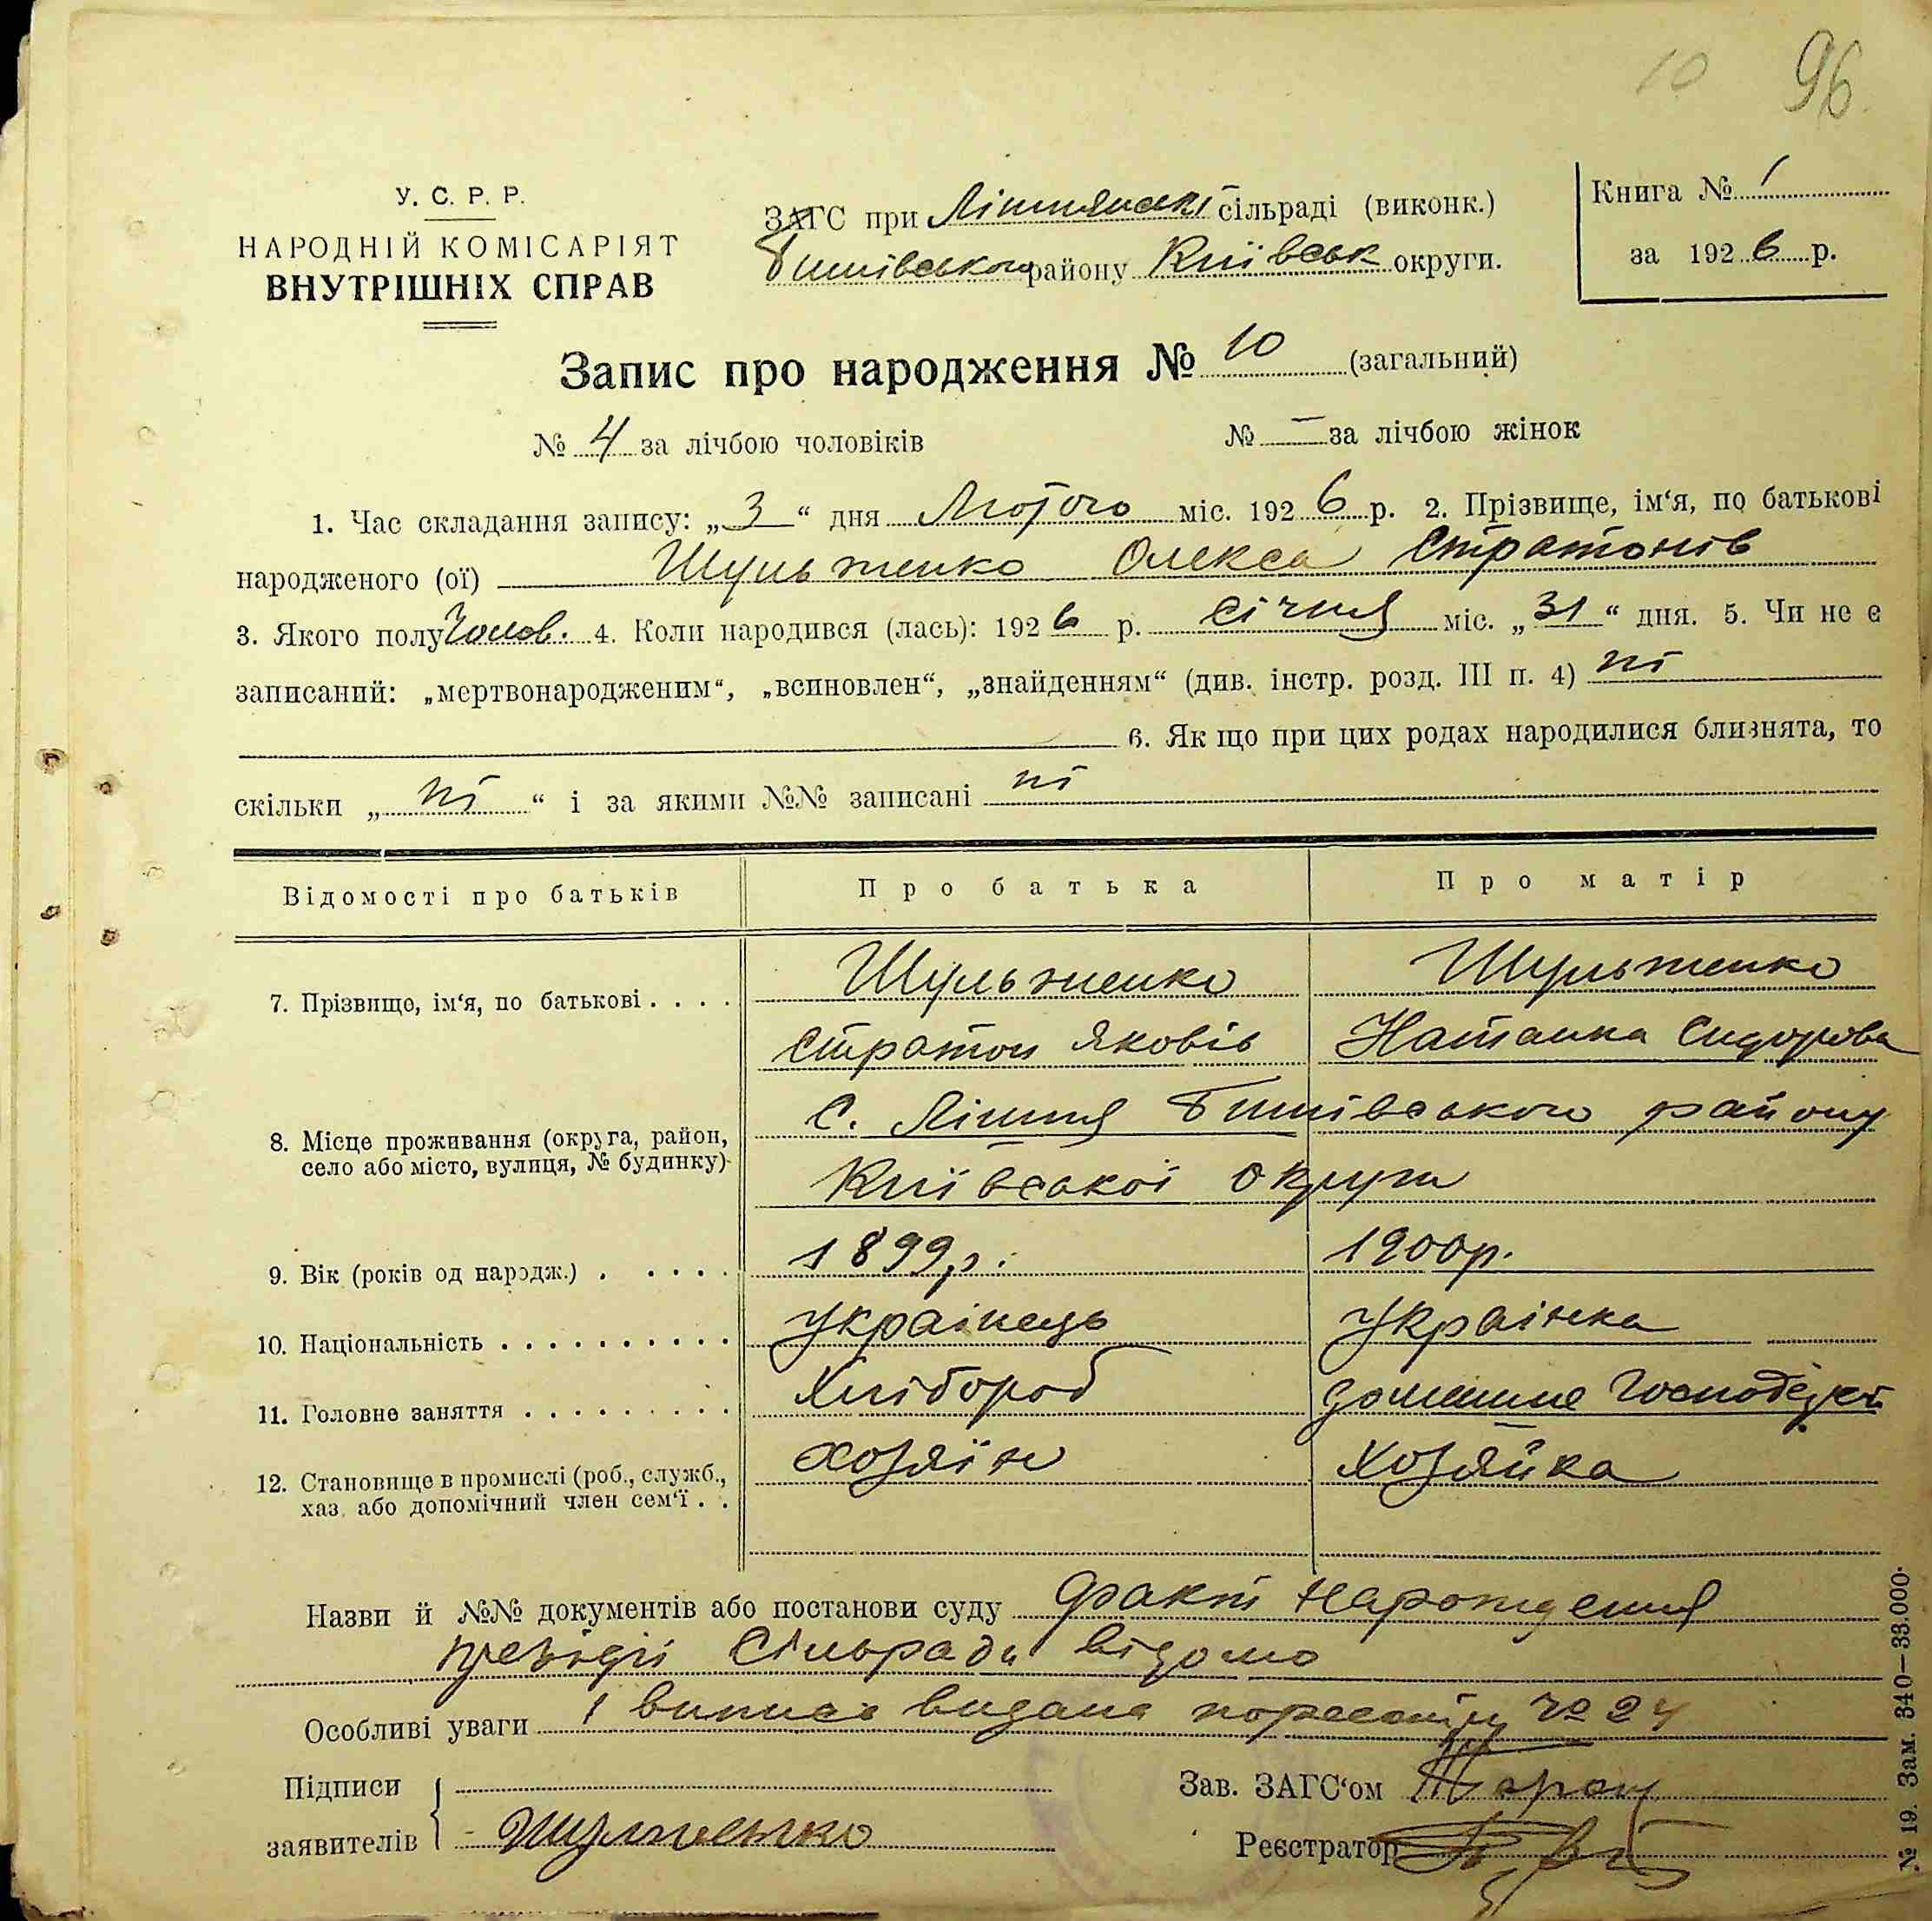 10 96
У. С. Р. Р.
НАРОДНІЙ КОМІСАРІЯТ
ВНУТРІШНІХ СПРАВ
ЗАГС при Ліпнянські сільраді (виконк.)
Бишівського району Київськ округи.
Книга № 1
за 1926 р.
Запис про народження № 10 (загальний)
№ 4 за лічбою чоловіків № — за лічбою жінок
1. Час складання запису: „3“ дня Лютого міс. 1926 р. 2. Прізвище, ім‘я, по батькові
народженого (ої) Шульженко Олекса Стратонів
3. Якого полу Чолов. 4. Коли народився (лась): 1926 р. Січня міс. „31“ дня. 5. Чи не є
записаний: „мертвонародженим“, „всиновлен“, „знайденням“ (див. інстр. розд. III п. 4) ні
6. Як що при цих родах народилися близнята, то
скільки „ні“ і за якими №№ записані ні
Відомості про батьків Про батька Про матір
7. Прізвище, ім‘я, по батькові . . . . Шульженко Шульженко
Стратон Яковів Наталка Сидорова
8. Місце проживання (округа, район, село або місто, вулиця, № будинку) С. Ліпня Бишівського району
Київської округи
9. Вік (років од народж.) . . . . . 1899р. 1900р.
10. Національність . . . . . . . . . . українець Українка
11. Головне заняття . . . . . . . . . Хлібороб домашнє
12. Становище в промислі (роб., служб., хаз. або допомічний член сем‘ї . . хозяїн Хозяйка
Назви й №№ документів або постанови суду Факт Нарождення
президії Сільради відомо
Особливі уваги 1 випись видана № 24
Підписи
заявителів Шульженко
Зав. ЗАГС‘ом
Реєстратор
№ 19. Зам. 340—33.000.